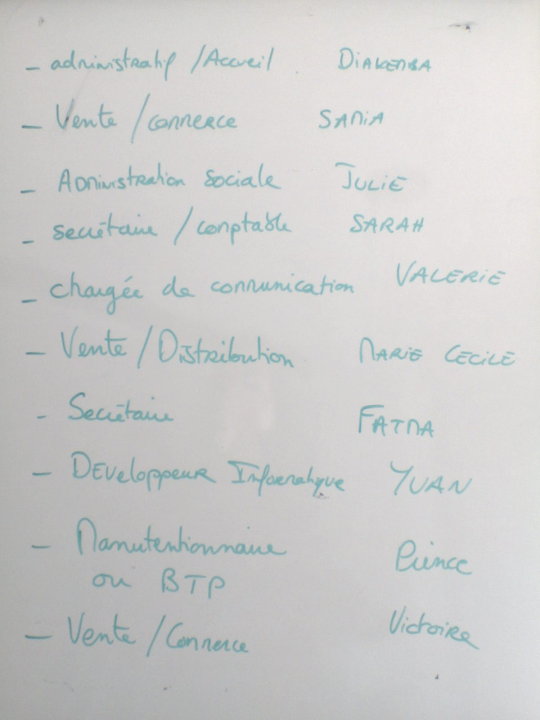 - administratif / Accueil DIAKENBA
- Vente / commerce SAMIA
- Administration Sociale JULIE
- secrétaire / comptable SARAH
- chargée de communication VALERIE
- Vente / Distribution MARIE CECILE
- Secrétaire FATMA
- DEveloppeur Informatique YUAN
- Manutentionnaire Prince
ou BTP
- Vente / Commerce Victoire